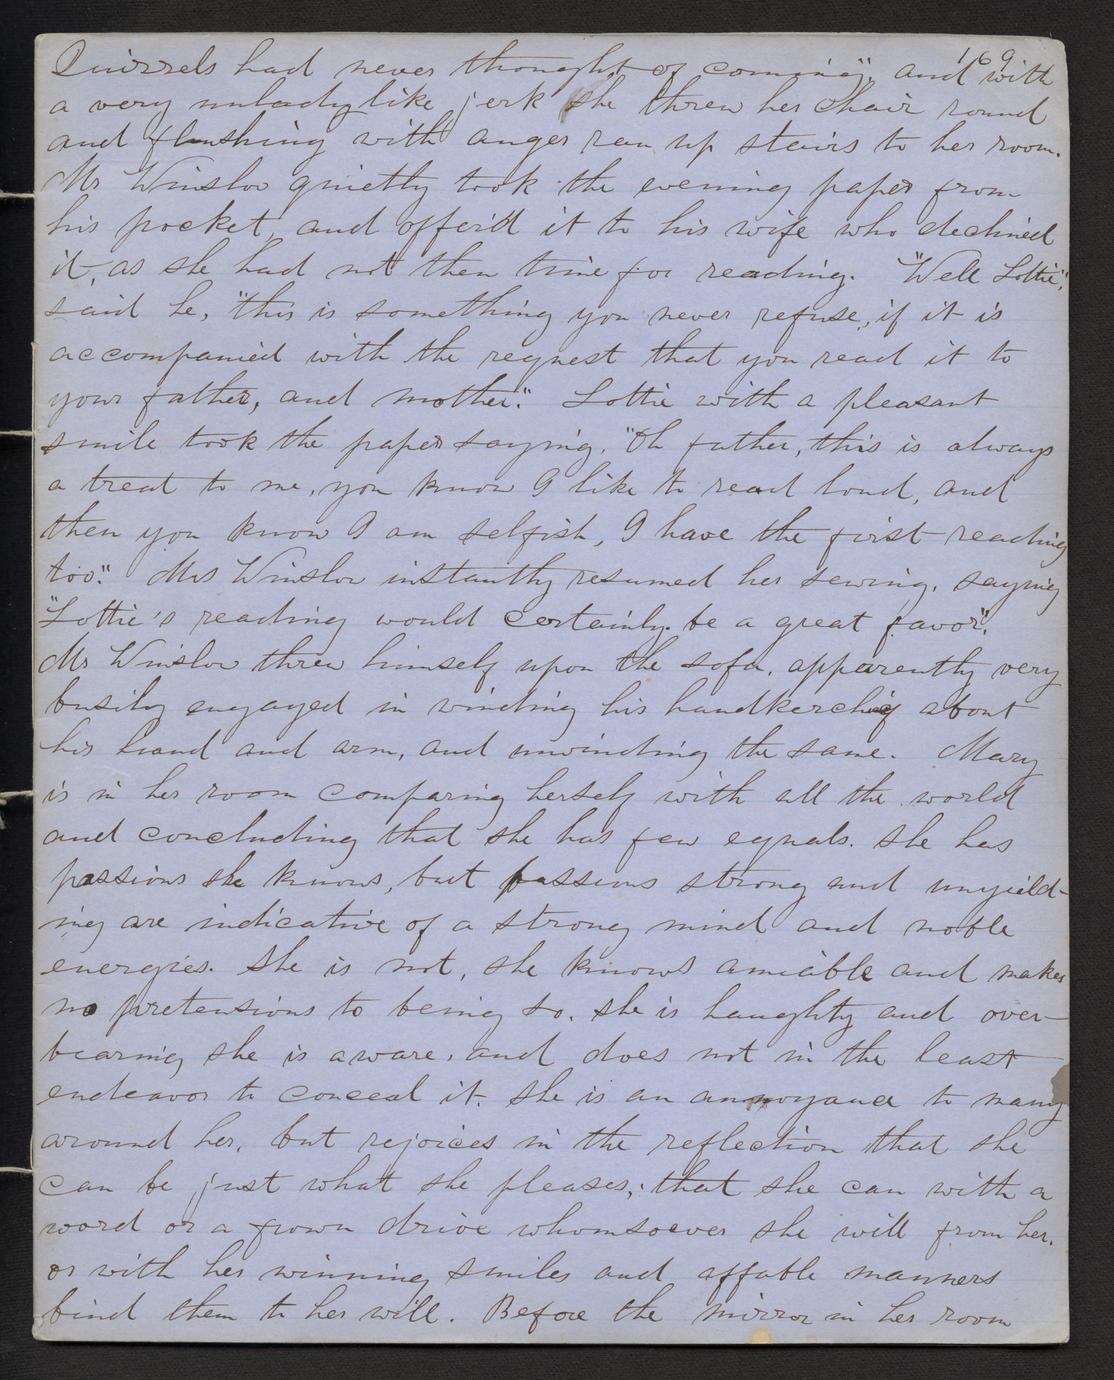 169
Quirrels had never thought of coming", and with
a very unladylike jerk she threw her chair round
and flushing with anger ran up stairs to her room.
Mr Winslow quietly took the evening paper from
his pocket, and offer'd it to his wife who declined
it, as she had not then time for reading. "Well Lottie",
said he, "this is something you never refuse, if it is
accompanied with the request that you read it to
your father, and mother." Lottie with a pleasant
smile took the paper saying, "Oh father, this is always
a treat to me, you know I like to read loud, and
then you know I am selfish, I have the first reading
too." Mrs Winslow instantly resumed her sewing, saying
"Lottie's reading would certainly be a great favor".
Mr Winslow threw himself upon the sofa, apparently very
busily engaged in winding his handkerchief about
his hand and arm, and unwinding the same. Mary
is in her room comparing herself with all the world
and concluding that she has few equals. She has
passions she knows, but passions strong and unyield-
ing are indicative of a strong mind and noble
energies. She is not, she knows amiable and makes
no pretensions to being so. she is haughty and over-
bearing she is aware, and does not in the least
endeavor to conceal it. She is an annoyance to many
around her, but rejoices in the reflection that she
can be just what she pleases; that she can with a
word or a frown drive whomsoever she will from her,
or with her winning smiles and affable manners
bind them to her will. Before the mirror in her room